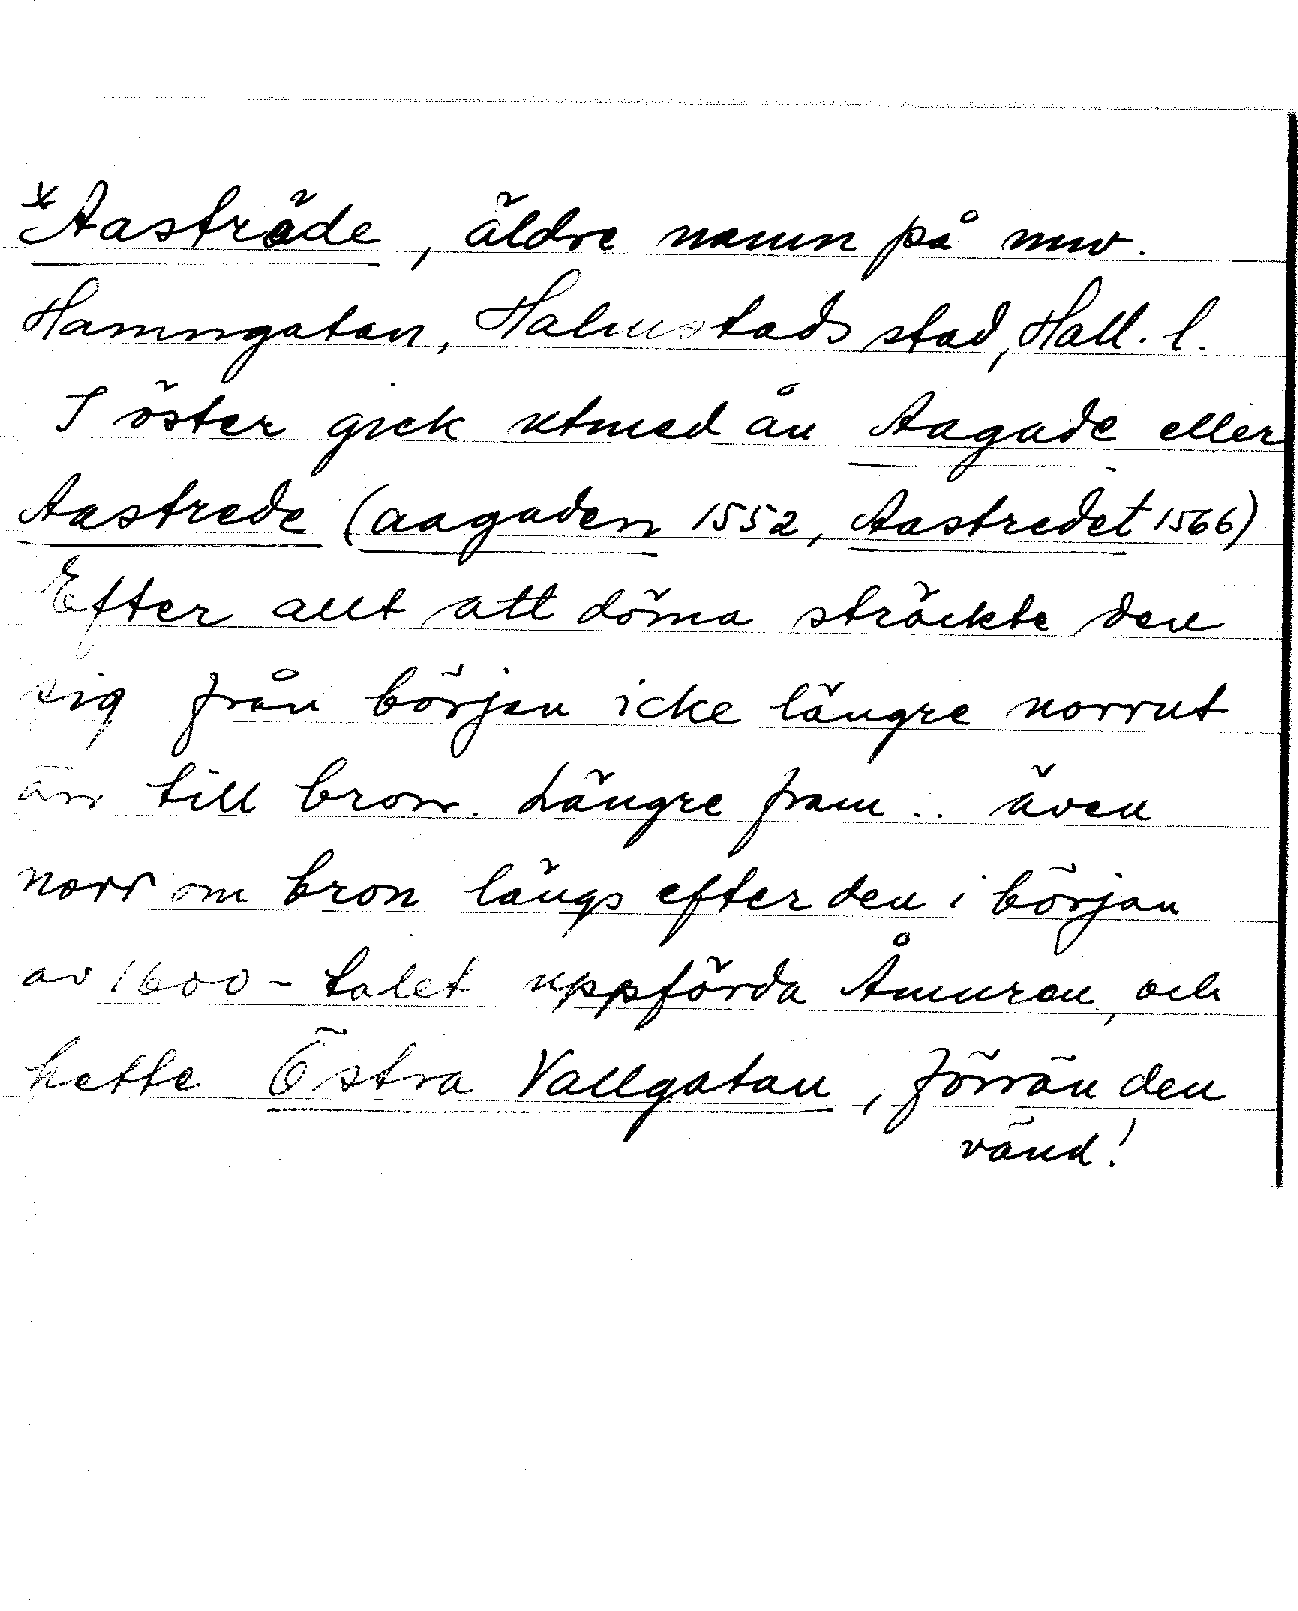 *Aasträde, äldre namn på nuv.
Hamngatan, Halmstads stad, Hall. l.
I öster gick utmed ån Aagade eller
Aastrede (aagaden 1552, Aastredet 1566)
Efter allt att döma sträckte den
sig från början icke längre norrut
än till bron. Längre fram .. även
norr om bron längs efter den i början
av 1600-talet uppförda Åmuren, och
hette Östra Vallgatan, förrän den
vänd!